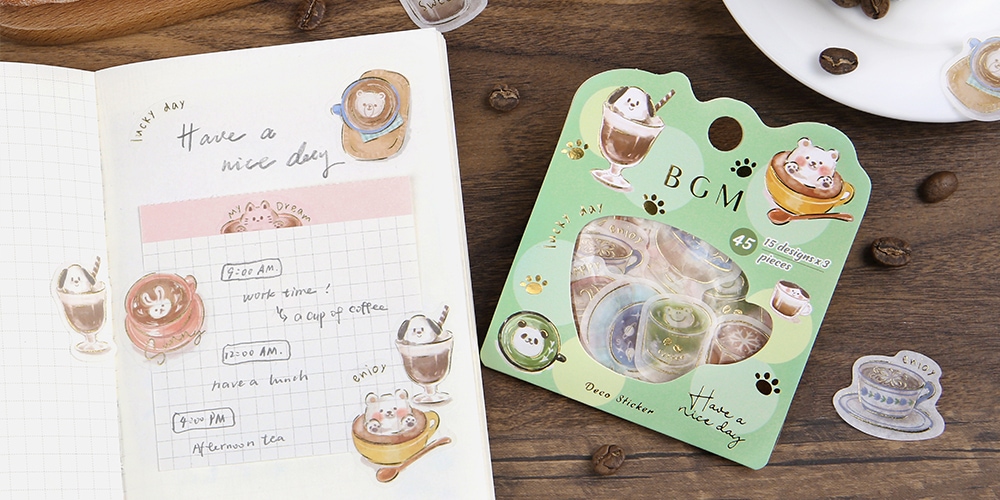 lucky day
Have a
nice day
My Dream
9:00 AM.
work time !
↳ a cup of coffee
12:00 AM.
have a lunch
4:00 PM
Afternoon tea
Sunny
enjoy
BGM
lucky day
45
15 designs x 3
pieces
enjoy
Deco Sticker
Have a
nice day
enjoy